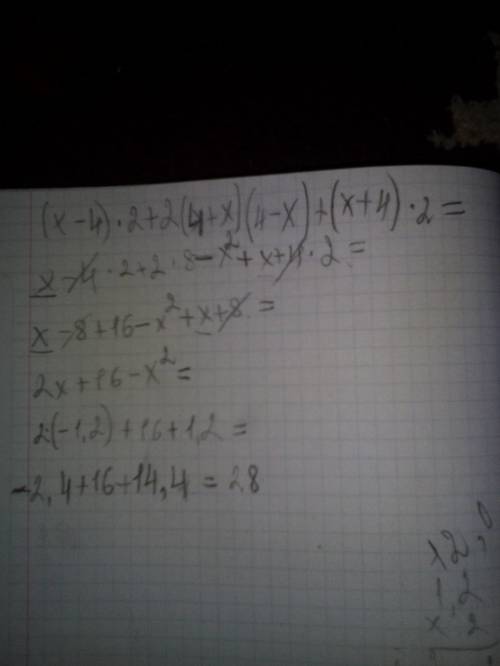 (x-4)·2+2(4+x)(4-x)+(x+4)·2=
x-4·2+2·8-x²+x+4·2=
x-8+16-x²+x+8=
2x+16-x²=
2·(-1,2)+16+1,2=
-2,4+16+14,4=28
12,0
1,2
x 2